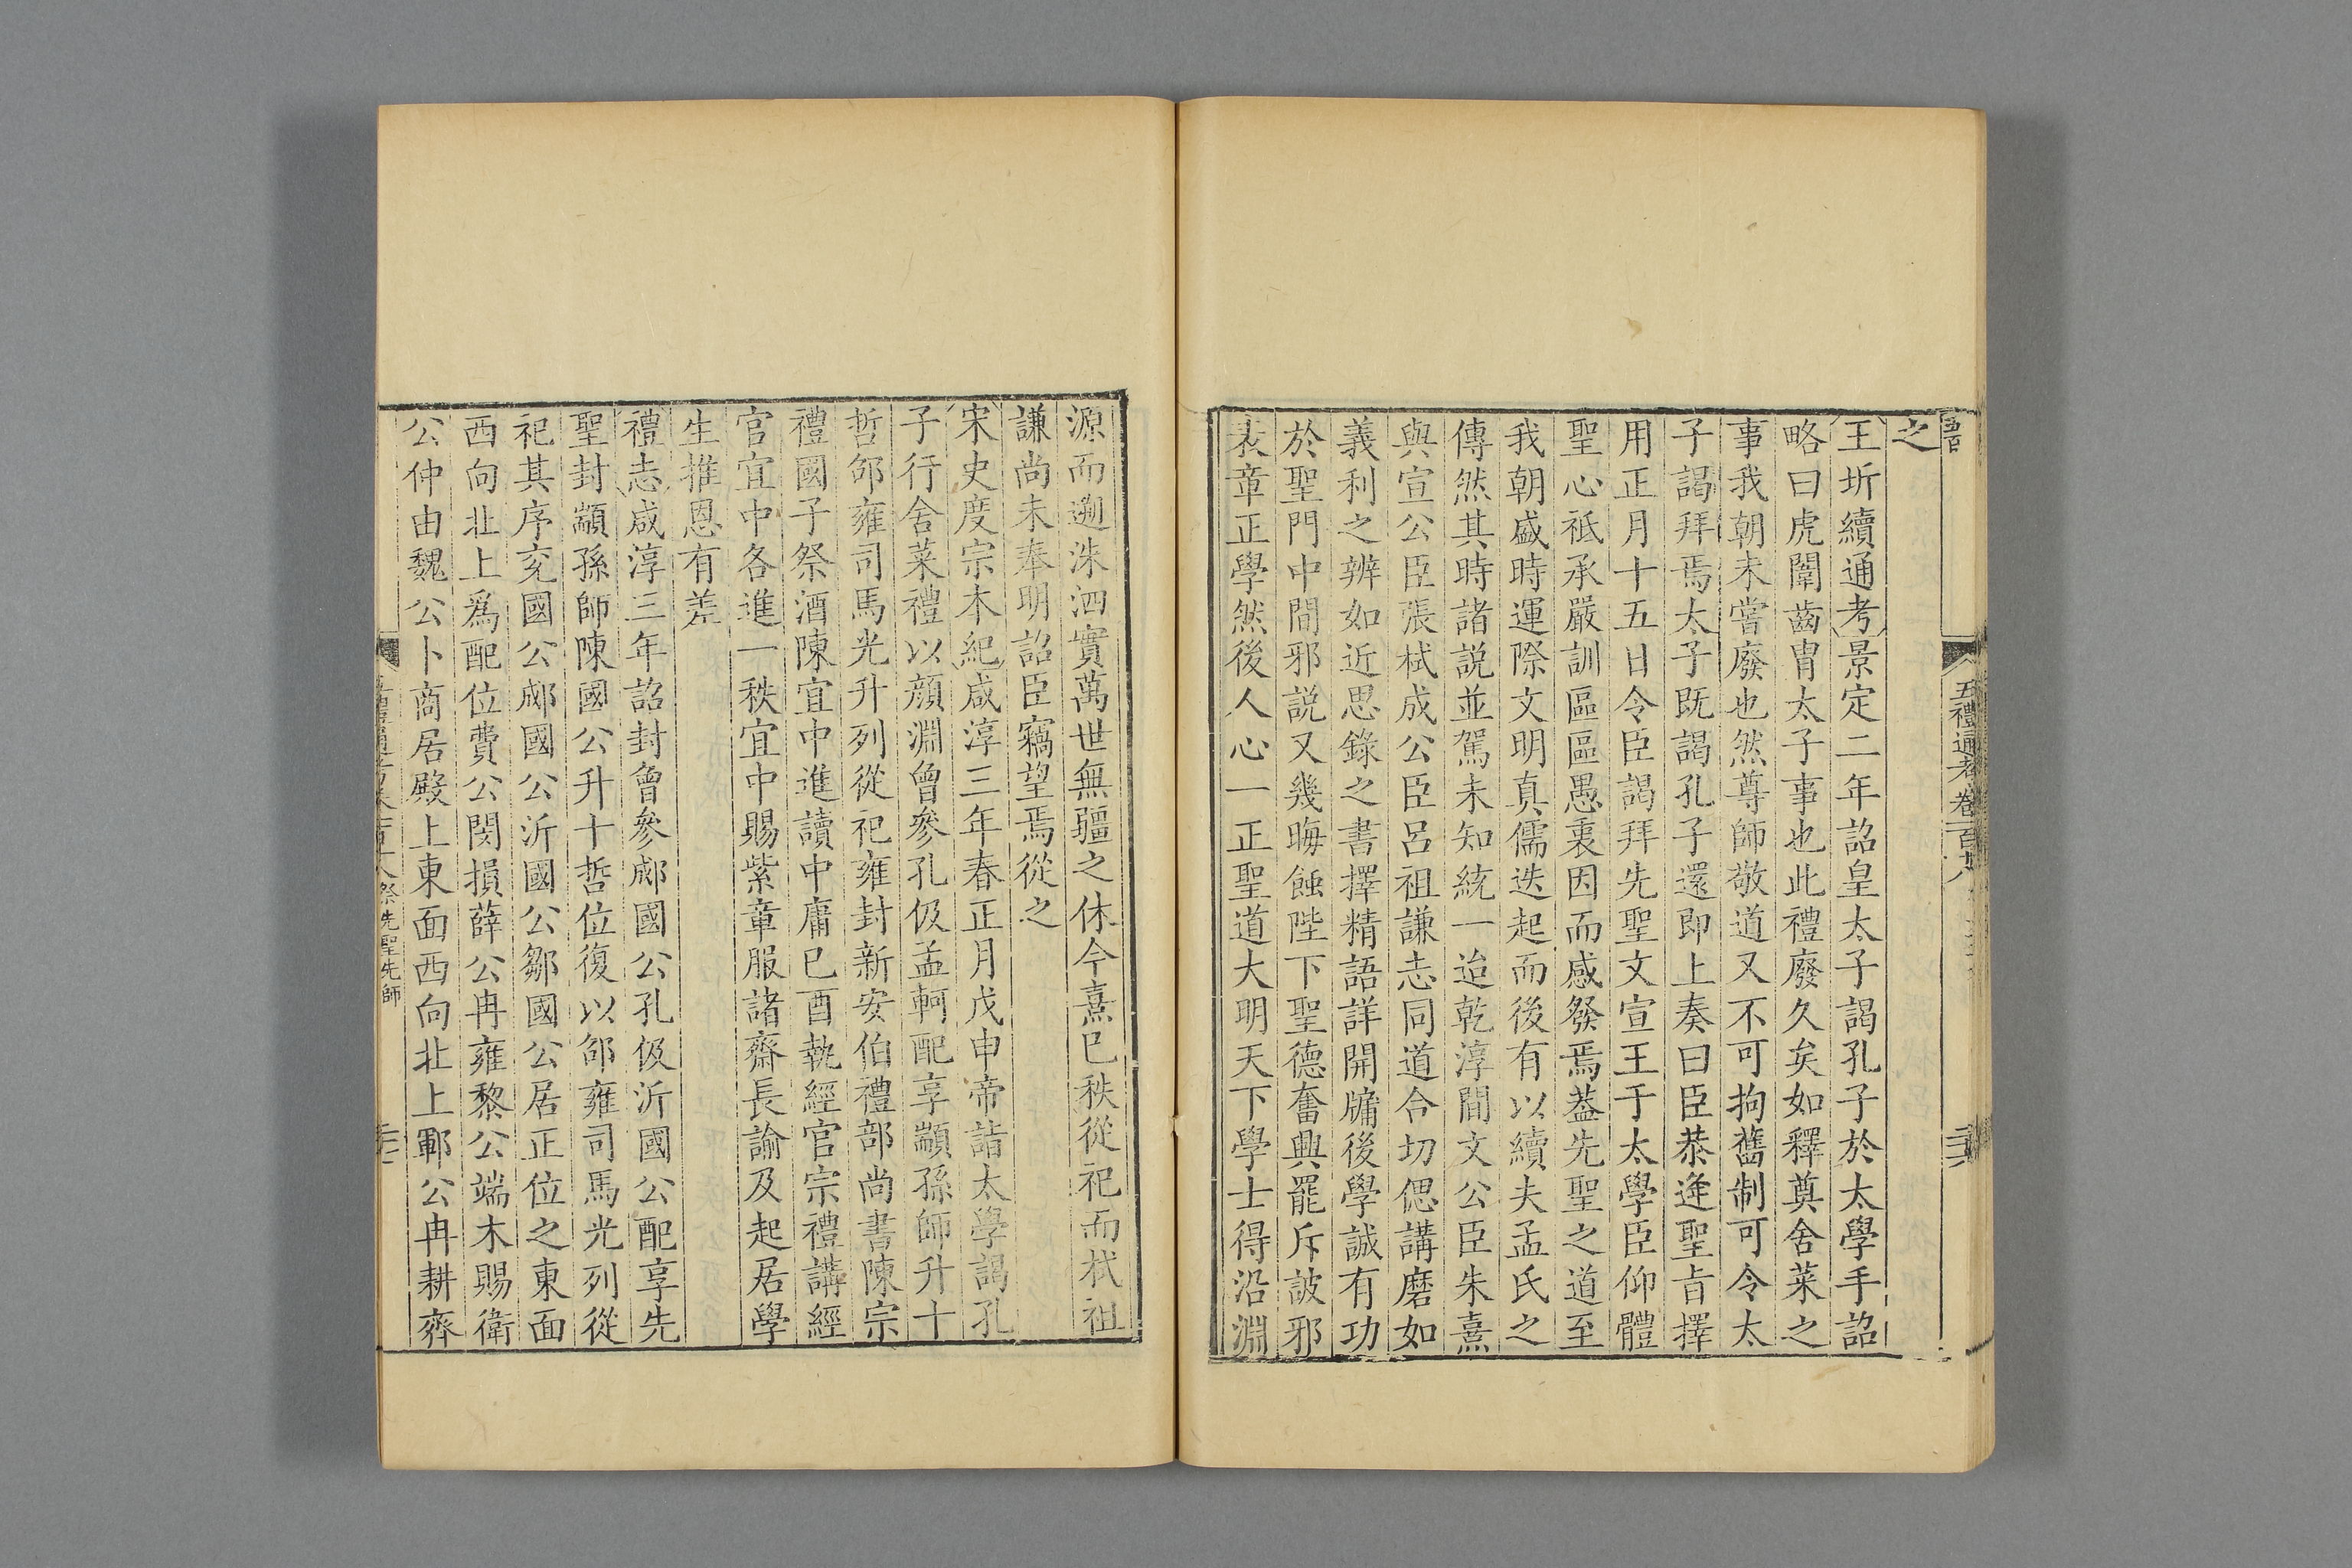 五禮通考卷一百十八
之
王圻續通考景定二年詔皇太子謁孔子於太學手詔
略曰虎闈齒胄太子事也此禮廢久矣如釋奠舍菜之
事我朝未嘗廢也然尊師敬道又不可拘舊制可令太
子謁拜焉太子既謁孔子還即上奏曰臣恭逢聖旨擇
用正月十五日令臣謁拜先聖文宣王于太學臣仰體
聖心祗承嚴訓區區愚衷因而感發焉葢先聖之道至
我朝盛時運際文明真儒迭起而後有以續夫孟氏之
傳然其時諸説並駕未知統一迨乾淳間文公臣朱熹
與宣公臣張栻成公臣呂祖謙志同道合切偲講磨如
義利之辨如近思錄之書擇精語詳開牖後學誠有功
於聖門中間邪説又幾晦蝕陛下聖德奮興罷斥詖邪
表章正學然後人心一正聖道大明天下學士得沿淵
源而遡洙泗實萬世無疆之休今熹已秩從祀而栻祖
謙尚未奉明詔臣竊望焉從之
宋史度宗本紀咸淳三年春正月戊申帝詣太學謁孔
子行舍菜禮以顔淵曾參孔伋孟軻配享顓孫師升十
哲邵雍司馬光升列從祀雍封新安伯禮部尚書陳宗
禮國子祭酒陳宜中進讀中庸已酉執經官宗禮講經
官宜中各進一秩宜中賜紫章服諸齋長諭及起居學
生推恩有差
禮志咸淳三年詔封曾參郕國公孔伋沂國公配享先
聖封顓孫師陳國公升十哲位復以邵雍司馬光列從
祀其序兗國公郕國公沂國公鄒國公居正位之東面
西向北上爲配位費公閔損薛公冉雍黎公端木賜衛
公仲由魏公卜商居殿上東面西向北上鄆公冉耕齊
祭先聖先師